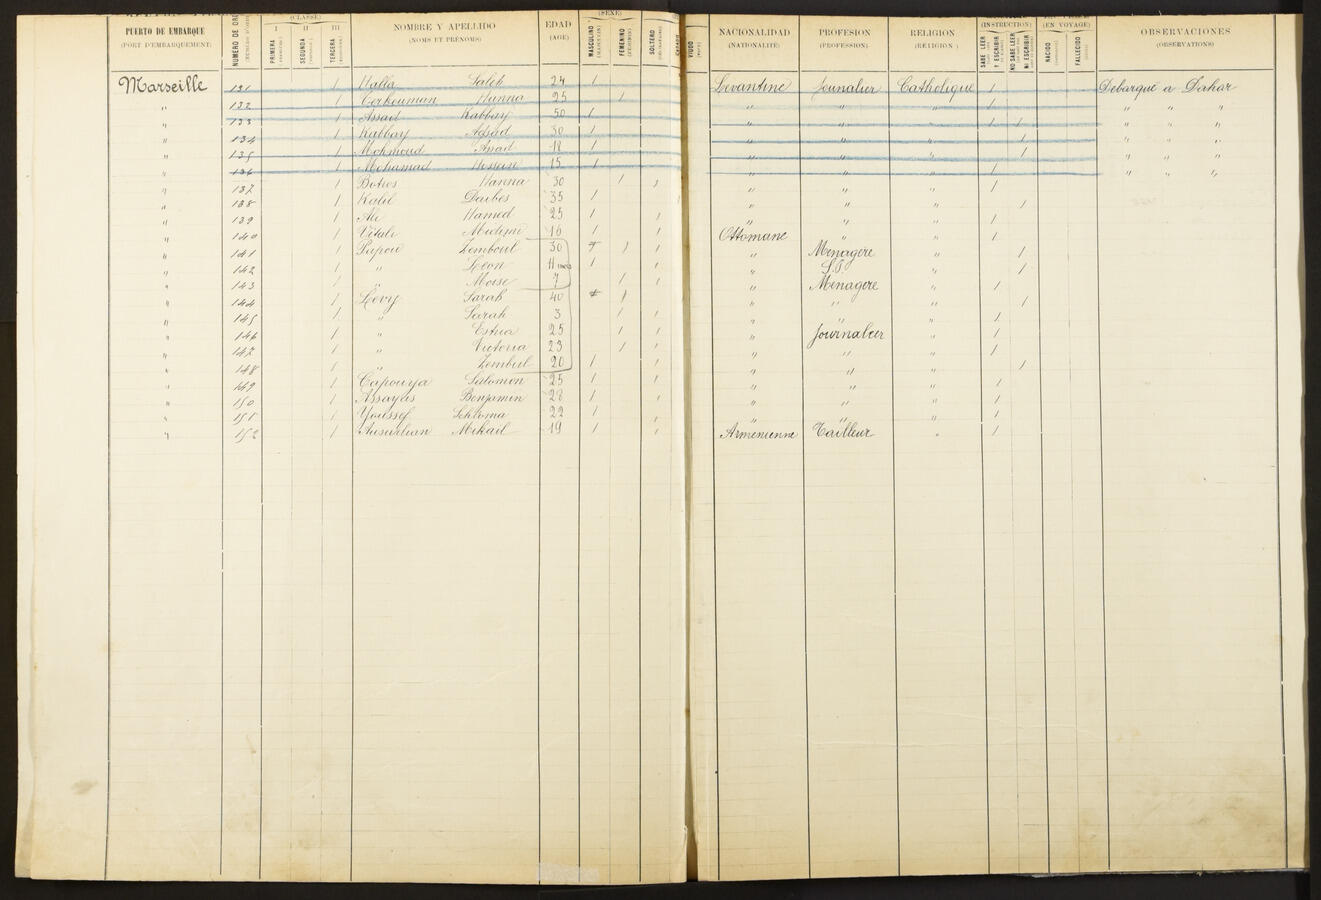 PUERTO DE EMBARQUE (PORT D'EMBARQUEMENT) NUMERO DE (CLASSE) I PRIMERA II SEGUNDA III TERCERA NOMBRE Y APELLIDO (NOMS ET PRÉNOMS) EDAD (AGE) (SEXE) MASCULINO FEMENINO SOLTERO NACIONALIDAD (NATIONALITÉ) PROFESION (PROFESSION) RELIGION (RELIGION) (INSTRUCTION) SABE LEER Y ESCRIBIR NO SABE LEER NI ESCRIBIR (EN VOYAGE) NACIDO FALLECIDO OBSERVACIONES (OBSERVATIONS)
Marseille 131 / Halla Saleh 24 / Levantine Journalier Catholique / Debarqué a Dakar
" 132 / Hanna 25 / " " " / " " "
" 133 / Assad Kabbay 50 / " " " / / " " "
" 134 / Kabbay Assad 30 / " " " / " " "
" 135 / Mohmoud Assad 18 / " " " / " " "
" 136 / Mohamad Hossein 15 / " " " / " " "
" 137 / Botros Hanna 30 / / " " " /
" 138 / Kalil Daibes 35 / " " " /
" 139 / Ali Hamed 25 / / " " " /
" 140 / Vitali 16 / / Ottomane " " /
" 141 / Papou Zemboul 30 / / " Menagère " /
" 142 / " Leon 11 mois / / " S.P. " /
" 143 / " Moise 7 / / " Menagère " /
" 144 / Levy Sarah 40 / " " " /
" 145 / " Sarah 3 / / " " " /
" 146 / " 25 / / " Journalier " /
" 147 / " Victoria 23 / / " " " /
" 148 / " Zembul 20 / / " " " /
" 149 / Capouya Salomon 25 / / " " " /
" 150 / Assayas Benjamin 28 / / " " " /
" 151 / Youssef Schloma 22 / / " " " /
" 152 / Mikail 19 / / Armenienne Tailleur " /